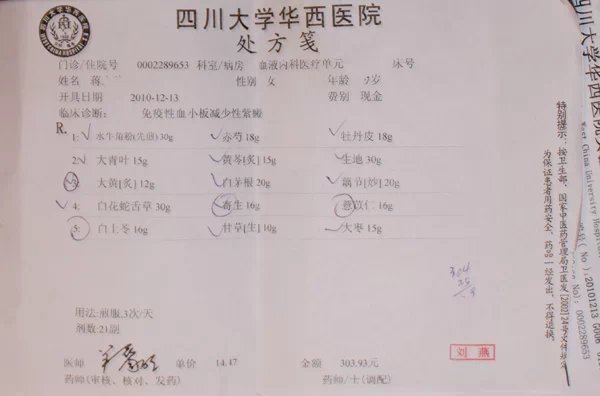 四川大学华西医院
处方笺
门诊/住院号 0002289653 科室/病房 血液内科医疗单元 床号
姓名 蒋 性别 女 年龄 岁
开具日期 2010-12-13 费别 现金
临床诊断: 免疫性血小板减少性紫癜
R.
1: 水牛角粉(先煎) 30g 赤芍 18g 牡丹皮 18g
2: 大青叶 15g 黄芩[炙] 15g 生地 30g
3: 大黄[炙] 12g 白茅根 20g 藕节[炒] 20g
4: 白花蛇舌草 30g 寄生 16g 薏苡仁 16g
5: 白土苓 16g 甘草[生] 10g 大枣 15g
304
用法: 煎服,3次/天
剂数: 21副
医师 单价 14.47 金额 303.93元
刘 燕
药师(审核、核对、发药) 药师/士(调配)
特别提示: 按卫生部、国家中医药管理局卫医发[2002]24号文件规定
为保证患者用药安全,药品一经发出,不得退换。
四川大学华西医院
West China University Hospital
20101213 G006
No): 0002289653